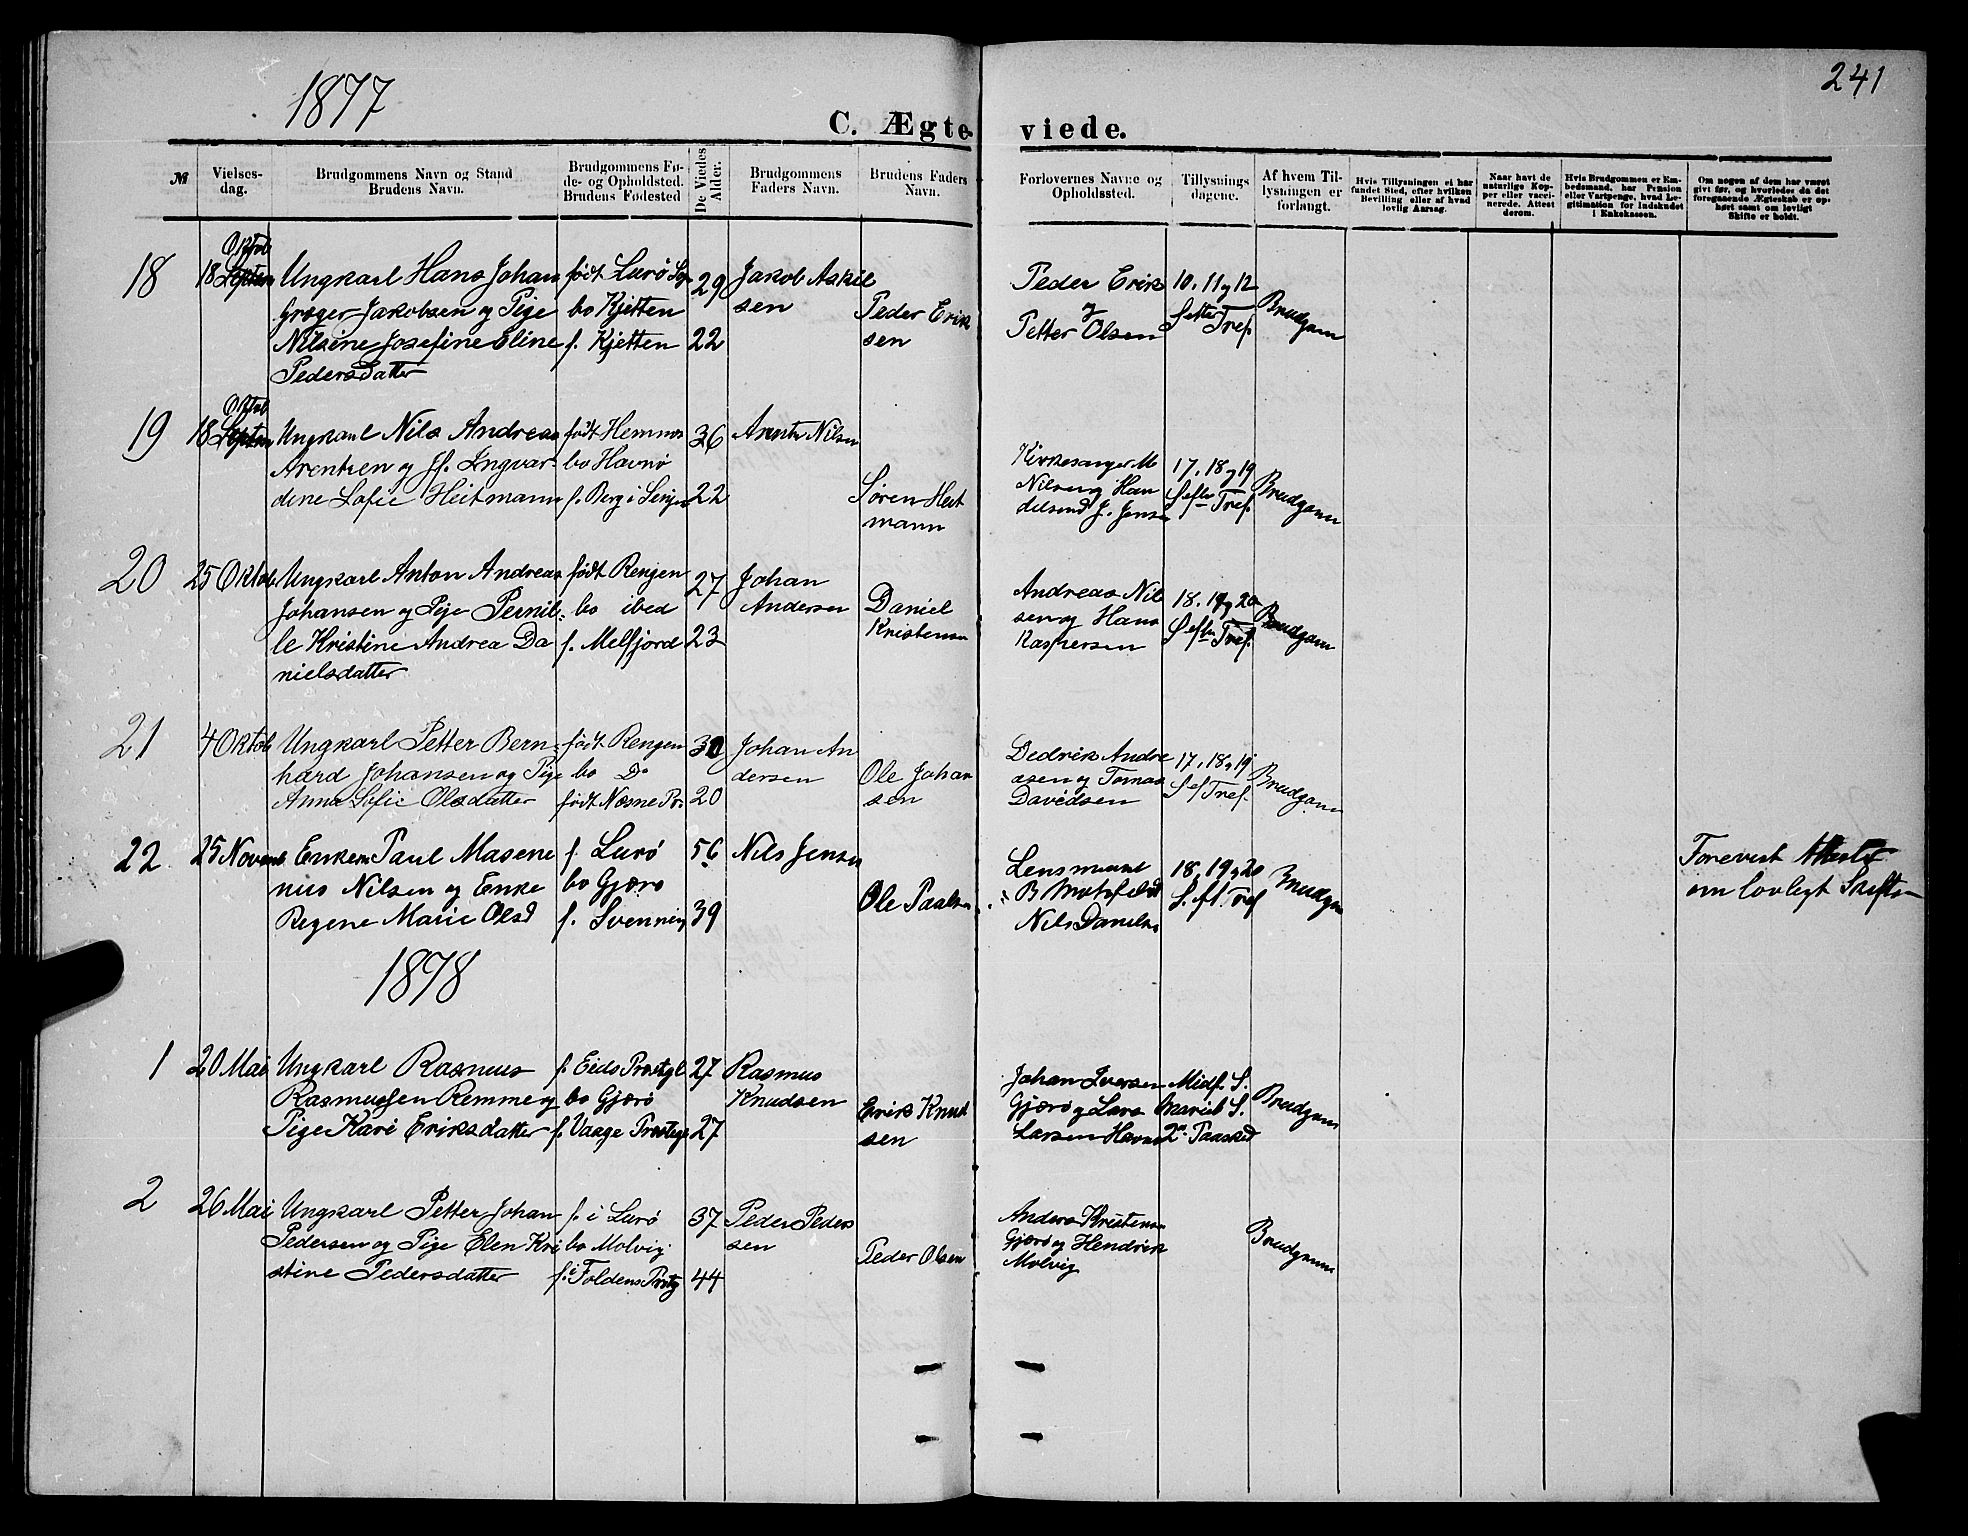 1877
241
C. Ægteviede.
№
Vielsesdag.
Brudgommens Navn og Stand
Brudens Navn.
Brudgommens Føde- og Opholdsted.
Brudens Fødested
De Viedes Alder.
Brudgommens
Faders Navn.
Brudens Faders
Navn.
Forlovernes Navne og
Opholdssted.
Tillysnings
dagene.
Af hvem Tillysningen er
forlangt.
Hvis Tillysningen ei har
fundet Sted, efter hvilken
Bevilling eller af hvad
lovlig Aarsag.
Naar havt de
naturlige Kopper eller vaccinerede. Attest
derom.
Hvis Brudgommen er Embedsmand, har Pension
eller Vartpenge, hvad Legitimation for Indskudet
i Enkekassen.
Om nogen af dem har været
gift før, og hvorledes da det
foregaaende Ægteskab er ophørt samt om lovligt
Skifte er holdt.
18
Oktob
18 Septem
Ungkarl Hans Johan
Grøger Jakobsen og Pige
Nilsine Josefine Eline
Pedersdatter
født Lurø Sogn
bo Kjetten
f. Kjetten
29
22
Jakob Askil
sen
Peder Erik
sen
Peder Erik
og
Petter Olsen
10. 11 og 12
S efter Tref.
Brudgom
19
Oktob
18 Septem
Ungkarl Nils Andreas
Arentsen og Jf. Ingvar-
dine Sofie Heitmann
født Hemnes
bo Havnø
f. Berg i Senjen
36
22
Arentz Nilsen
Søren Heit
mann
Kirkesanger M
Nilsen og Han
delsmd J. Jensen
17. 18 og 19
S efter Tref.
Brudgom
20
25 Oktob
Ungkarl Anton Andreas
Johansen og Pige Pernil-
le Kristine Andrea Da
nielsdatter
født Rengen
bo ibed
f. Melfjord
27
23
Johan
Andersen
Daniel
Kristensen
Andreas Nil
sen og Hans
Kaspersen
18. 19 og 20
S efter Tref.
Brudgom
21
4 Oktob
Ungkarl Petter Bern-
hard Johansen og Pige
Anna Sofie Olsdatter
født Rengen
bo Do
født Næsne Pr.
30
20
Johan An
dersen
Ole Johan
sen
Dedrik Andre
asen og Tomas
Davidsen
17. 18 og 19
S ef Tref.
Brudgom
22
25 Novemb
Enkem. Paul Masene
nus Nilsen og Enke
Regene Marie Olsd
f. Lurø
bo Gjærø
f. Svenning
56
39
Nils Jensen
Ole Paalsen
Lensmand
B Motzfeldt
Nils Danielsen
18. 19 og 20
S. ft. Tref
Brudgom
Forevist Attest
om lovligt Skifte
1878
1
20 Mai
Ungkarl Rasmus
Rasmussen Remme og
Pige Kari Eriksdatter
f. Eids Prestgl
bo Gjærø
f. Vaage Prestegl
27
27
Rasmus
Knudsen
Erik Knud
sen
Johan Iversen
Gjærø og Lars
Larsen Havnø
Midf. S.
Marieb S.
2n. Paasked
Brudgom
2
26 Mai
Ungkarl Petter Johan
Pedersen og Pige Elen Kri
stine Pedersdatter
f. i Lurø
bo Molvig
f. i Foldens Prstg
37
44
Peder Peder
sen
Peder Olsen
Anders Kristensen
Gjærø og Hendrik
Molvig
Brudgom